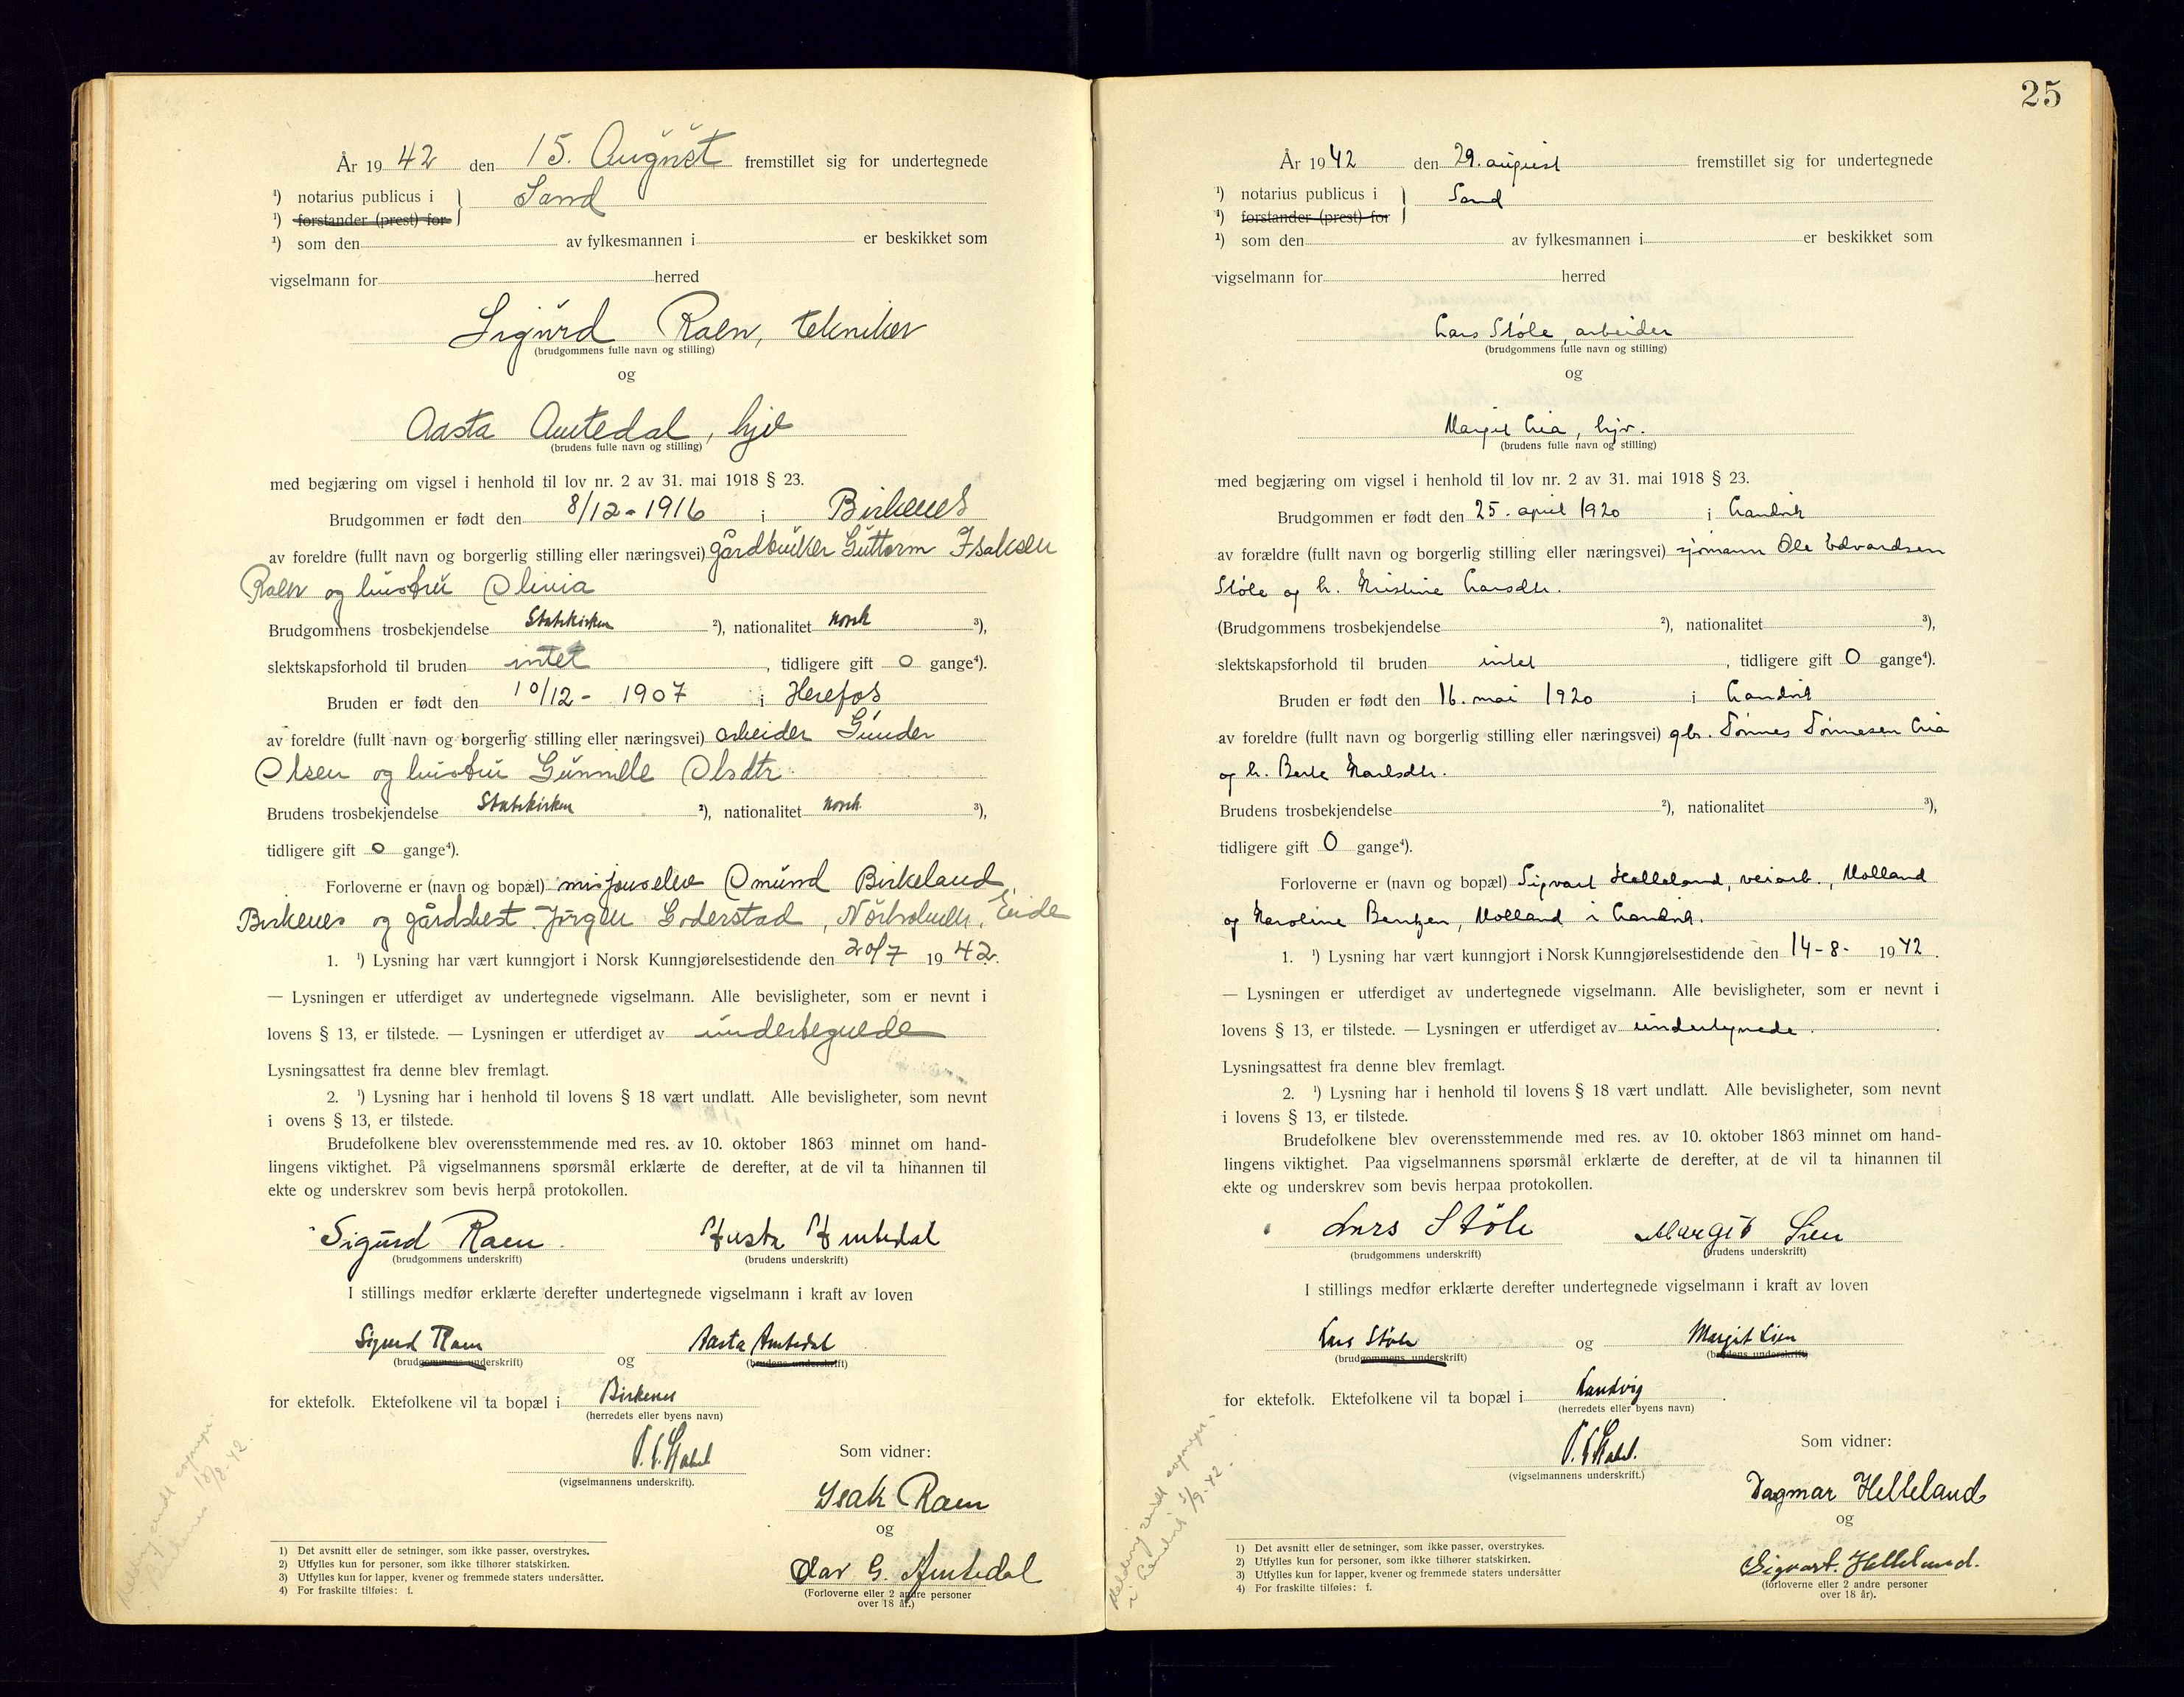 År 19 42 den 15. August fremstillet sig for undertegnede
¹) notarius publicus i } Sand
¹) forstander (prest) for
¹) som den av fylkesmannen i er beskikket som
vigselmann for herred
Sigurd Raen, tekniker
(brudgommens fulle navn og stilling)
og
Aasta Amtedal, hjv
(brudens fulle navn og stilling)
med begjæring om vigsel i henhold til lov nr. 2 av 31. mai 1918 § 23.
Brudgommen er født den 8/12 - 1916 i Birkenes
av foreldre (fullt navn og borgerlig stilling eller næringsvei) gårdbruker Guttorm Isaksen
Raen og hustru Olivia
Brudgommens trosbekjendelse Statskirken ²), nationalitet norsk ³),
slektskapsforhold til bruden intet, tidligere gift 0 gange⁴).
Bruden er født den 10/12 - 1907 i Herefos
av foreldre (fullt navn og borgerlig stilling eller næringsvei) arbeider Gunder
Olsen og hustru Gunnelle Olsdtr.
Brudens trosbekjendelse Statskirken ²), nationalitet norsk ³),
tidligere gift 0 gange⁴).
Forloverne er (navn og bopæl) misjonselev Omund Birkeland,
Birkenes og gårdsbest. Jørgen Goderstad, Nørholmen, Eide
1. ¹) Lysning har vært kunngjort i Norsk Kunngjørelsestidende den 20/7 19 42.
— Lysningen er utferdiget av undertegnede vigselmann. Alle bevisligheter, som er nevnt i
lovens § 13, er tilstede. — Lysningen er utferdiget av undertegnede
Lysningsattest fra denne blev fremlagt.
2. ¹) Lysning har i henhold til lovens § 18 vært undlatt. Alle bevisligheter, som nevnt
i ovens § 13, er tilstede.
Brudefolkene blev overensstemmende med res. av 10. oktober 1863 minnet om hand-
lingens viktighet. På vigselmannens spørsmål erklærte de derefter, at de vil ta hinannen til
ekte og underskrev som bevis herpå protokollen.
Sigurd Raen Aasta Amtedal
(brudgommens underskrift) (brudens underskrift)
I stillings medfør erklærte derefter undertegnede vigselmann i kraft av loven
Sigurd Raen og Aasta Amtedal
(brudgommens underskrift) (brudens underskrift)
for ektefolk. Ektefolkene vil ta bopæl i Birkenes
(herredets eller byens navn)
(vigselmannens underskrift).
Som vidner:
Isak Raen
og
Olav G. Amtedal
(Forloverne eller 2 andre personer
over 18 år.)
Melding sendt sognepr.
i Birkenes 18/8-42.
1) Det avsnitt eller de setninger, som ikke passer, overstrykes.
2) Utfylles kun for personer, som ikke tilhører statskirken.
3) Utfylles kun for lapper, kvener og fremmede staters undersåtter.
4) For fraskilte tilføies: f.
25
År 19 42 den 29. august fremstillet sig for undertegnede
¹) notarius publicus i } Sand
¹) forstander (prest) for
¹) som den av fylkesmannen i er beskikket som
vigselmann for herred
Lars Støle, arbeider
(brudgommens fulle navn og stilling)
og
Margit Lia, hjv.
(brudens fulle navn og stilling)
med begjæring om vigsel i henhold til lov nr. 2 av 31. mai 1918 § 23.
Brudgommen er født den 25. april 1920 i Landvik
av forældre (fullt navn og borgerlig stilling eller næringsvei) sjømann Ole Edvardsen
Støle og h. Kristine Larsdtr.
(Brudgommens trosbekjendelse ²), nationalitet ³),
slektskapsforhold til bruden intet, tidligere gift 0 gange⁴).
Bruden er født den 16. mai 1920 i Landvik
av foreldre (fullt navn og borgerlig stilling eller næringsvei) gbr. Tønnes Tønnesen Lia
og h. Berte Karlsdtr.
Brudens trosbekjendelse ²), nationalitet ³),
tidligere gift 0 gange⁴).
Forloverne er (navn og bopæl) Sigvart Helleland, veiarb., Molland
og Karoline Bentzen, Molland i Landvik.
1. ¹) Lysning har vært kunngjort i Norsk Kunngjørelsestidende den 14-8- 19 42.
— Lysningen er utferdiget av undertegnede vigselmann. Alle bevisligheter, som er nevnt i
lovens § 13, er tilstede. — Lysningen er utferdiget av undertegnede.
Lysningsattest fra denne blev fremlagt.
2. ¹) Lysning har i henhold til lovens § 18 vært undlatt. Alle bevisligheter, som nevnt
i lovens § 13, er tilstede.
Brudefolkene blev overensstemmende med res. av 10. oktober 1863 minnet om hand-
lingens viktighet. Paa vigselmannens spørsmål erklærte de derefter, at de vil ta hinannen til
ekte og underskrev som bevis herpaa protokollen.
Lars Støle Margit Lien
(brudgommens underskrift) (brudens underskrift)
I stillings medfør erklærte derefter undertegnede vigselmann i kraft av loven
Lars Støle og Margit Lien
(brudgommens underskrift) (brudens underskrift)
for ektefolk. Ektefolkene vil ta bopæl i Landvig.
(herredets eller byens navn)
(vigselmannens underskrift.)
Som vidner:
Dagmar Helleland
og
Sigvart. Helleland.
(forloverne eller 2 andre personer
over 18 år).
Melding sendt sognepr.
i Landvik 1/9-42.
1) Det avsnitt eller de setninger, som ikke passer, overstrykes.
2) Utfylles kun for personer, som ikke tilhører statskirken.
3) Utfylles kun for lapper, kvener og fremmede staters undersåtter
4) For fraskilte tilføies: f.